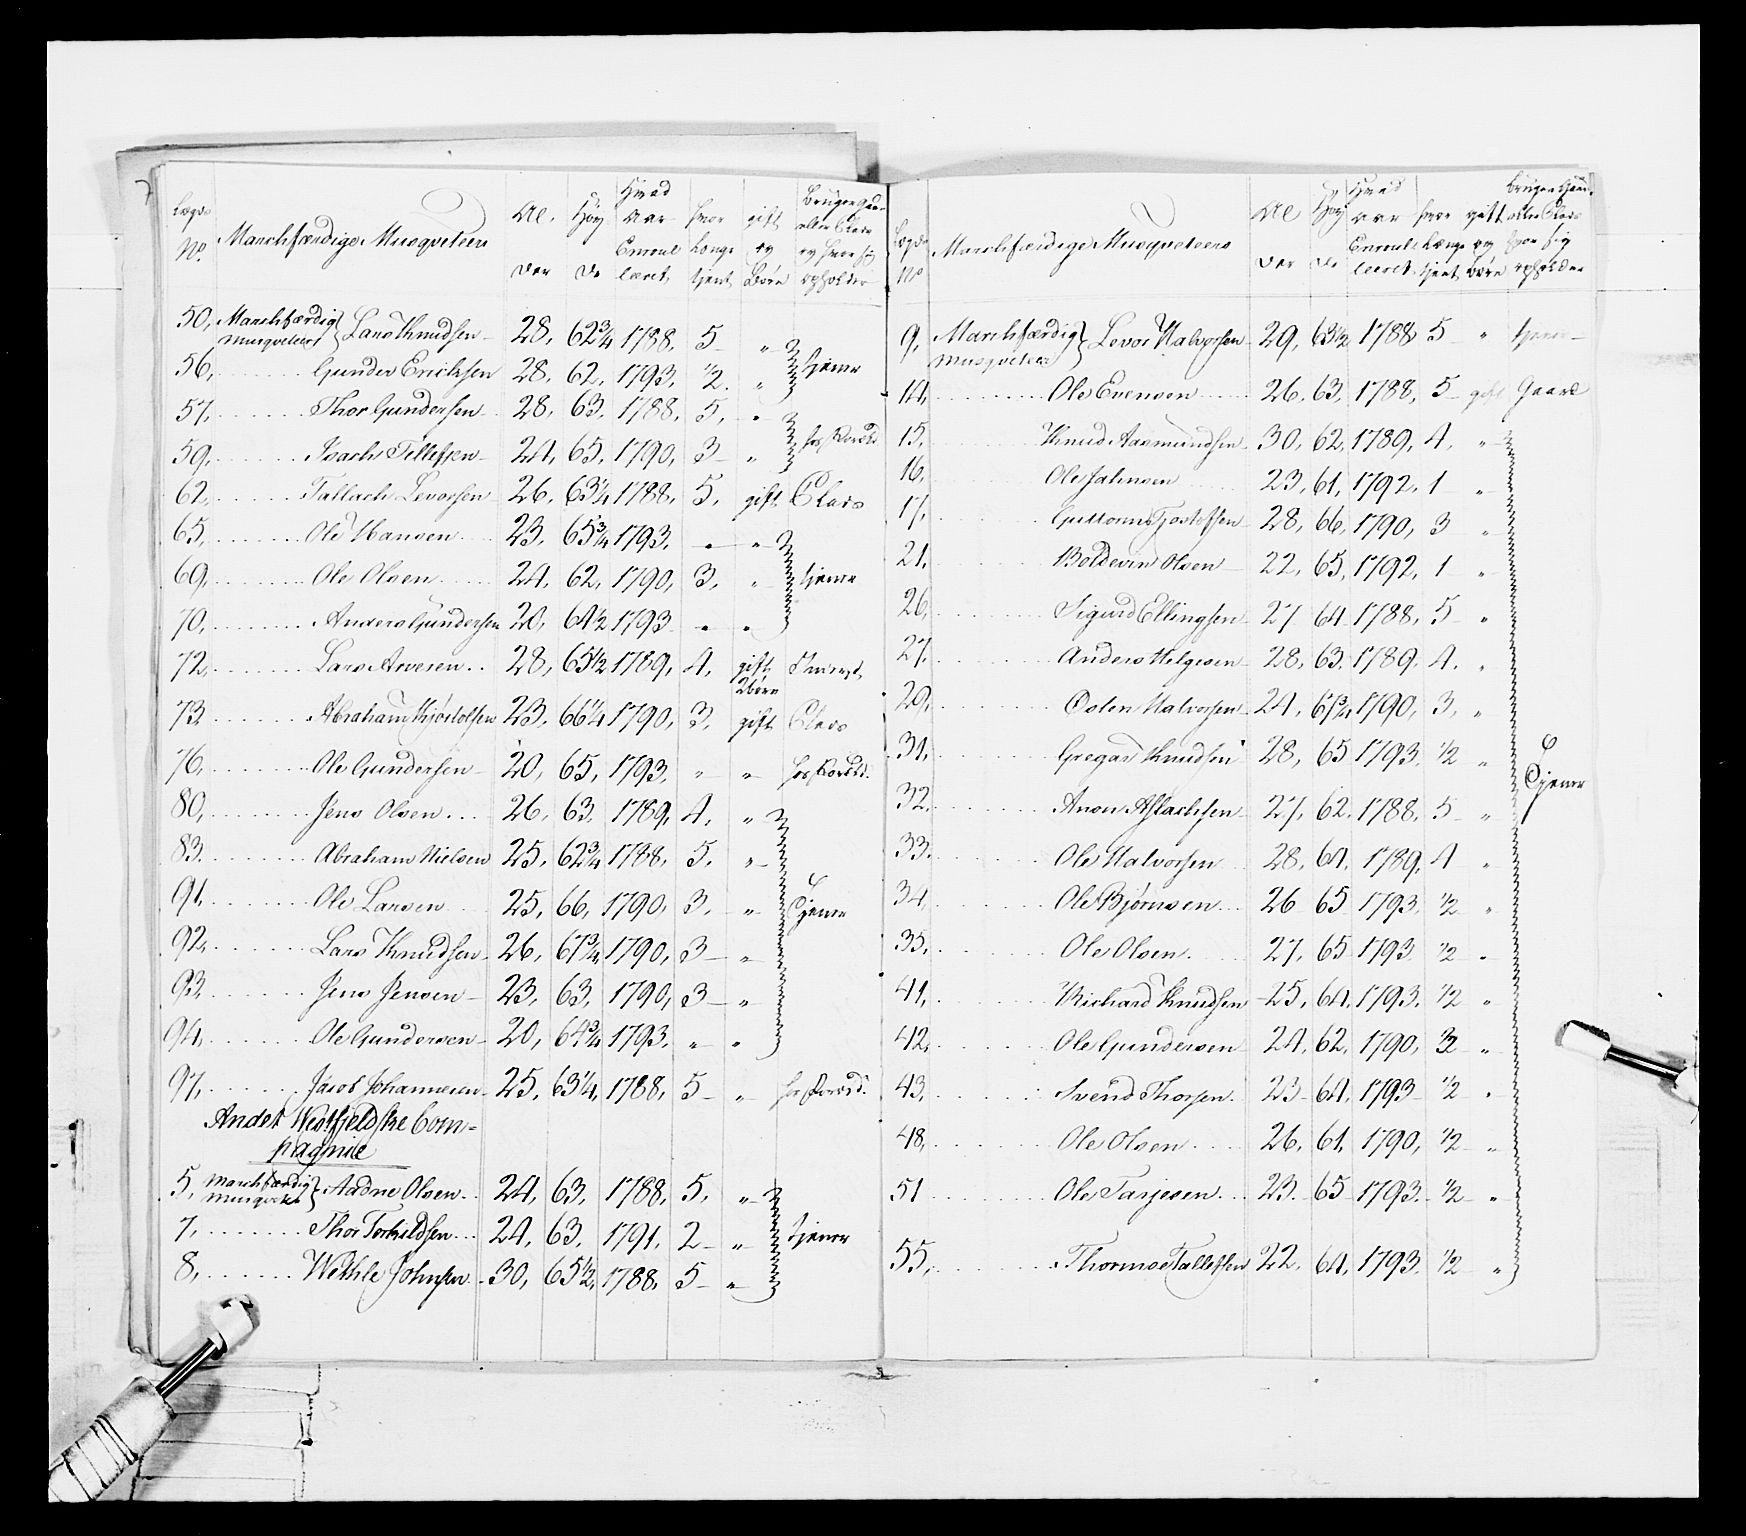 Lægds No. Marchfærdige Musqueteers Al- der Høy de Hvad Aar Enroul leeret hvor Længe tjent gift og Børn Bruger Gaard eller Plads og hvor sig opholder
50, Marchfærdig Musqueteer Lars Knudsen 28, 62 3/4 1788, 5 "
56, Gunder Erichsen 28, 62, 1793, 1/2 " tjener
57, Thor Gundersen 28, 63, 1788, 5, "
59, Isach Tellefsen 24, 65, 1790, 3 " hos Foræld.
62, Tallach Levorsen 26, 63 1/4 1788, 5, gift Plads
65, Ole Hansen 23, 65 3/4 1793, " "
69, Ole Olsen 24, 62, 1790, 3, " tjener
70, Anders Gundersen 20, 64 1/2 1793 " "
72, Lars Arvesen 28, 65 1/2 1789, 4, gift 2 børn
73 Abraham Kjøstolfsen 23, 66 1/4 1790, 3, gift Plads
76, Ole Gundersen 20, 65, 1793, " " hos Foræld.
80, Jens Olsen 26, 63, 1789, 4, "
83 Abraham Nielsen 25, 62 3/4 1788, 5, "
91, Ole Larsen 25, 66, 1790, 3, " Tjener
92, Lars Knudsen 26, 67 3/4 1790, 3 "
93, Jens Jensen 23, 63, 1790, 3 "
94, Ole Gundersen 20, 64 3/4 1793, " "
97, Jacob Johannesen 25, 63 1/4, 1788, 5 " hos Foræld.
Andet Westfieldske Com-
pagnie
5, Marchfærdig Musqueteer Aadne Olsen 24, 63, 1788, 5, "
7, Thor Torkildsen 24, 63, 1791, 2 " tjener
8, Wethle Johnsen 30, 65 1/2, 1788, 5 "
Lægds No Marchfærdige Musqueteers Al der Høy de Hvad Aar Enroul leeret hvor Længe tjent gift og børn bruger Gaard eller Plads hvor sig opholder
9, Marchfærdig Musqueteer Levor Halvorsen 29, 63 1/2 1788 5 " tjener
14, Ole Evensen 26, 63, 1788, 5 gift Gaard
15, Knud Aasmundsen 30, 62, 1789, 4, "
16, Ole Jahnsen 23, 61, 1792, 1 "
17, Guttorm Kjøstolfsen 28, 66, 1790, 3 "
21, Boldevin Olsen 22, 65, 1792, 1 "
26, Sigurd Ellingsen 27 64 1788, 5 "
27, Anders Helgesen 28, 63, 1789, 4, "
29, Osten Halvorsen 24, 67 3/4 1790, 3, "
31, Gregar Knudsen 28, 65 1793, 1/2 " Tjener
32, Anon Aslachsen 27, 62, 1788, 5 "
33, Ole Halvorsen 28, 64, 1789, 4 "
34, Ole Bjørnsen 26 65 1793, 1/2 "
35, Ole Olsen 27, 65 1793 1/2 "
41, Richard Knudsen 25, 64, 1793, 1/2 "
42, Ole Gundersen 24, 62, 1790, 3 "
43, Svend Thorsen 23 64, 1793 1/2 "
48, Ole Olsen 26, 61, 1790, 1/2 "
51 Ole Tarjesen 23, 65 1793 1/2 "
55, Thormoe Tallefsen 22, 64, 1793 1/2 "